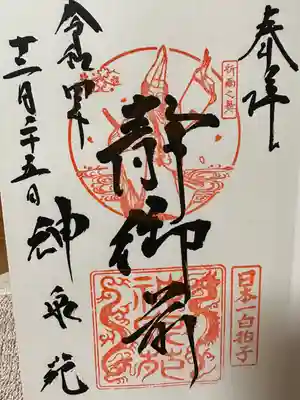 奉拝
祈雨之舞
静御前
日本一白拍子
令和四年
十二月二十五日
神泉苑